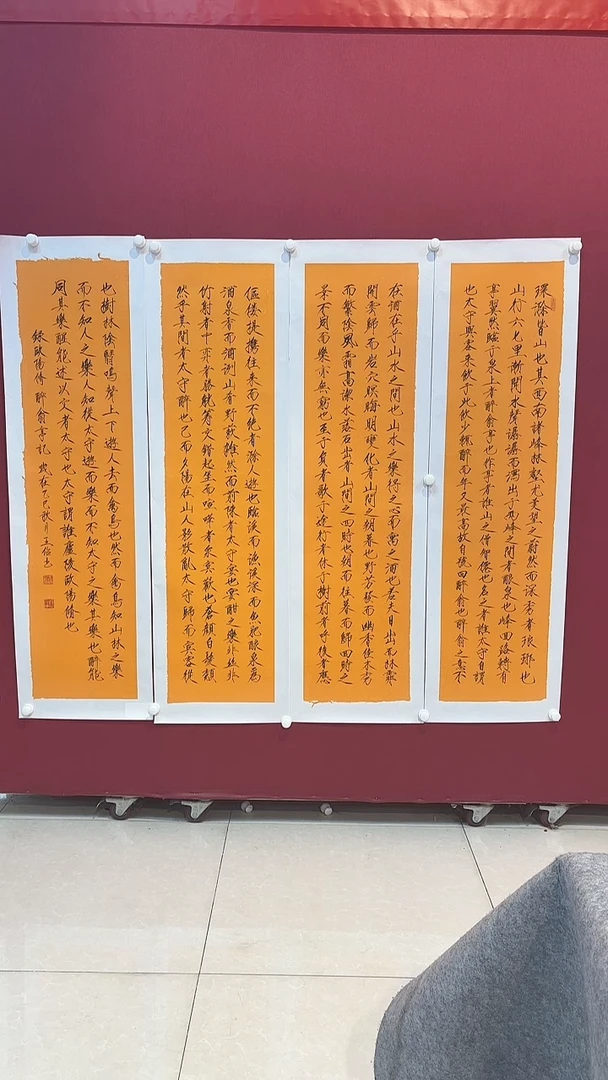 環滁皆山也其西南諸峰林壑尤美望之蔚然而深秀者琅琊也
山行六七里漸聞水聲潺潺而瀉出于兩峰之間者釀泉也峰回路轉有
亭翼然臨于泉上者醉翁亭也作亭者誰山之僧智僊也名之者誰太守自謂
也太守與客來飲于此飲少輒醉而年又最高故自號曰醉翁也醉翁之意不
在酒在乎山水之間也山水之樂得之心而寓之酒也若夫日出而林霏
開雲歸而岩穴暝晦明變化者山間之朝暮也野芳發而幽香佳木秀
而繁陰風霜高潔水落石出者山間之四時也朝而往暮而歸四時之
景不同而樂亦無窮也至于負者歌于途行者休于樹前者呼後者應
傴僂提攜往來而不絕者滁人遊也臨溪而漁溪深而魚肥釀泉為
酒泉香而酒洌山肴野蔌雜然而前陳者太守宴也宴酣之樂非絲非
竹射者中弈者勝觥籌交錯起坐而喧嘩者眾賓歡也蒼顏白髮頹
然乎其間者太守醉也已而夕陽在山人影散亂太守歸而賓客從
也樹林陰翳鳴聲上下遊人去而禽鳥樂也然而禽鳥知山林之樂
而不知人之樂人知從太守遊而樂而不知太守之樂其樂也醉能
同其樂醒能述以文者太守也太守謂誰廬陵歐陽脩也
錄歐陽脩醉翁亭記 歲在乙巳秋月